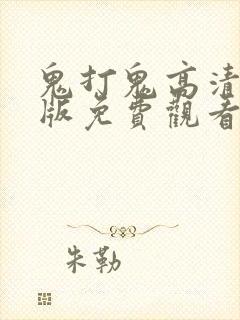 鬼打鬼高清
版免費觀看
朱勒